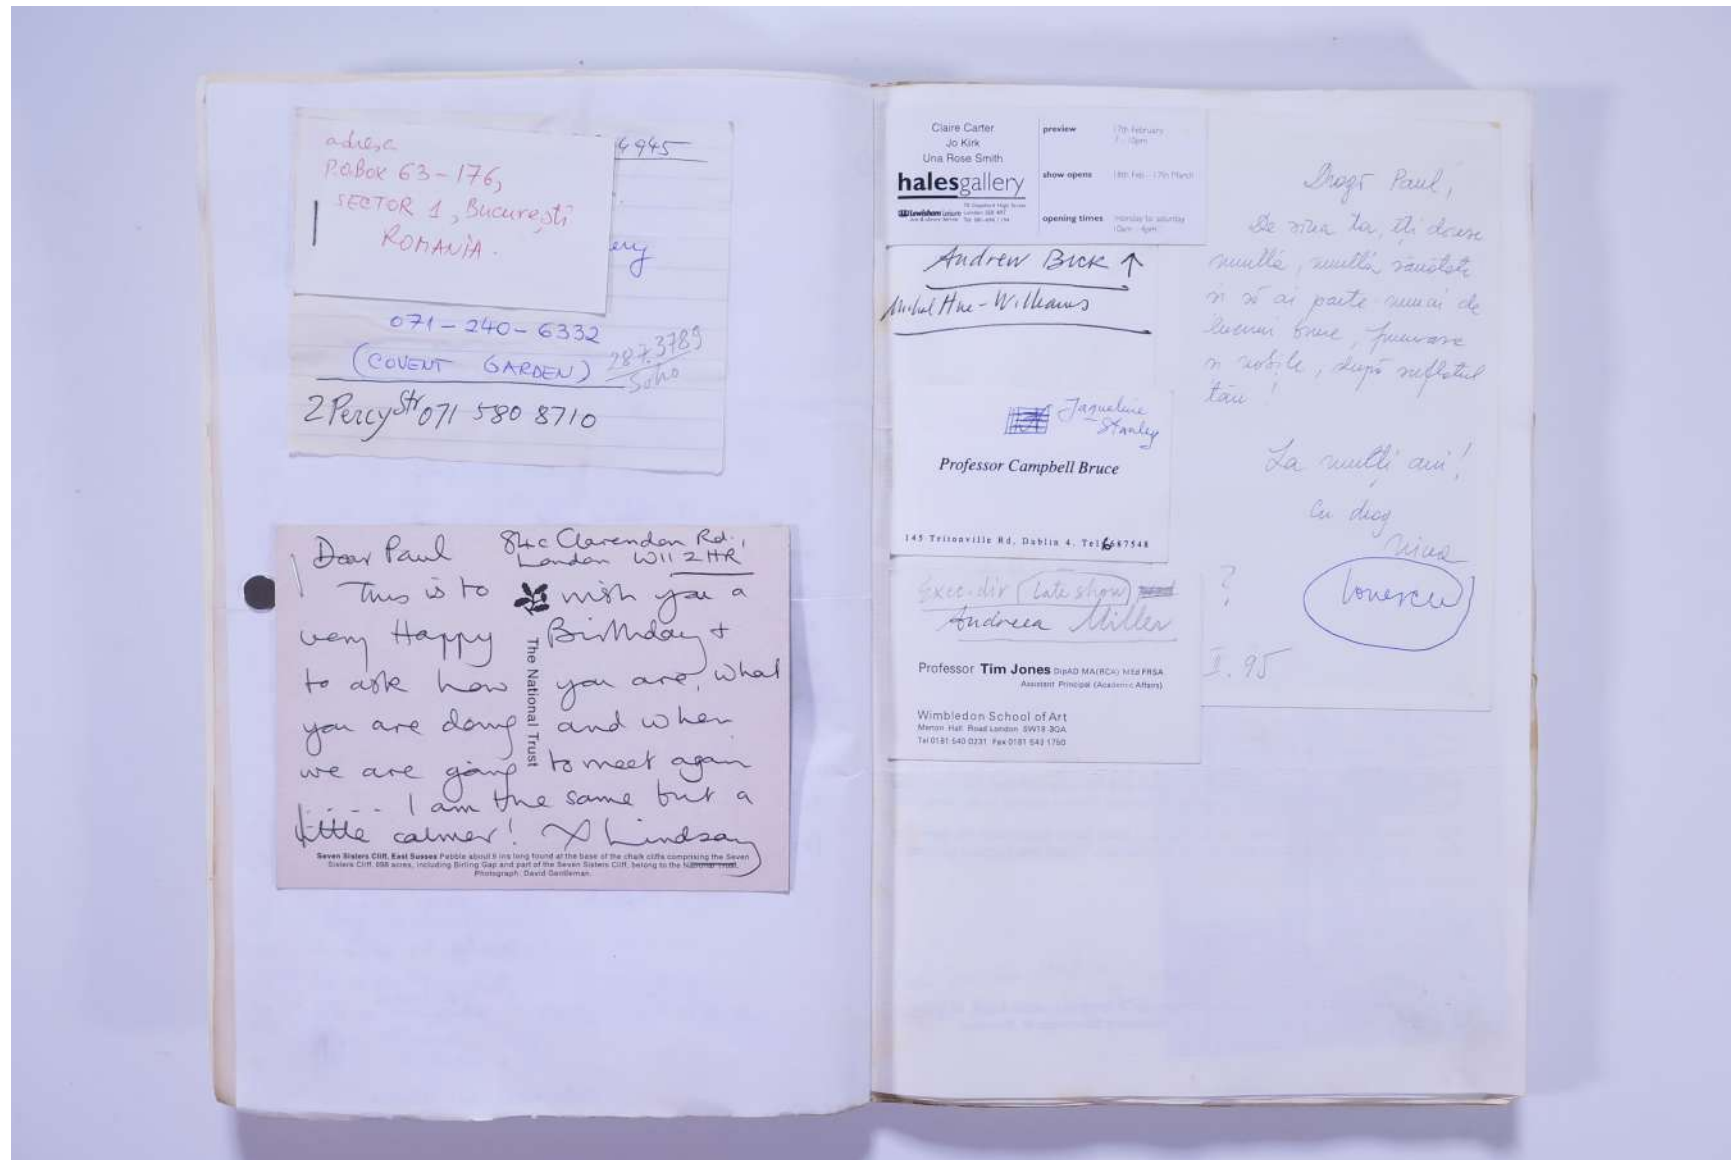 adresa
P.O.BOX 63-176,
SECTOR 1, București
ROMANIA.
4945
ery
071-240-6332
(COVENT GARDEN)
287.3789
Soho
2 Percy Str 071 580 8710
Dear Paul
84c Clarendon Rd.,
London W11 2HR
This is to wish you a
very Happy Birthday +
to ask how you are, what
you are doing and when
we are going to meet again
!.... I am the same but a
little calmer! X Lindsay
The National Trust
Seven Sisters Cliff, East Sussex Pebble about 6 ins long found at the base of the chalk cliffs comprising the Seven
Sisters Cliff. 698 acres, including Birling Gap and part of the Seven Sisters Cliff, belong to the National Trust.
Photograph: David Gentleman.
Claire Carter
Jo Kirk
Una Rose Smith
halesgallery
Lewisham Leisure
70 Deptford High Street
London SE8 4RT
preview 17th February
7 - 10pm
show opens 18th Feb - 17th March
opening times monday to saturday
10am - 4pm
Andrew Bick ↑
Michael Hue-Williams
Jaqueline
Stanley
Professor Campbell Bruce
145 Tritonville Rd, Dublin 4. Tel 6687548
Exec. dir (late show)
Andreea Miller
Professor Tim Jones DipAD MA(RCA) MEd FRSA
Assistant Principal (Academic Affairs)
Wimbledon School of Art
Merton Hall Road London SW19 3QA
Tel 0181 540 0231 Fax 0181 543 1750
Dragă Paul,
De ziua ta, îți doresc
multă, multă sănătate
și să ai parte numai de
lucruri bune, frumoase
și nobile, după sufletul
tău!
La mulți ani!
Cu drag
Nina
Ionescu
?
II. 95